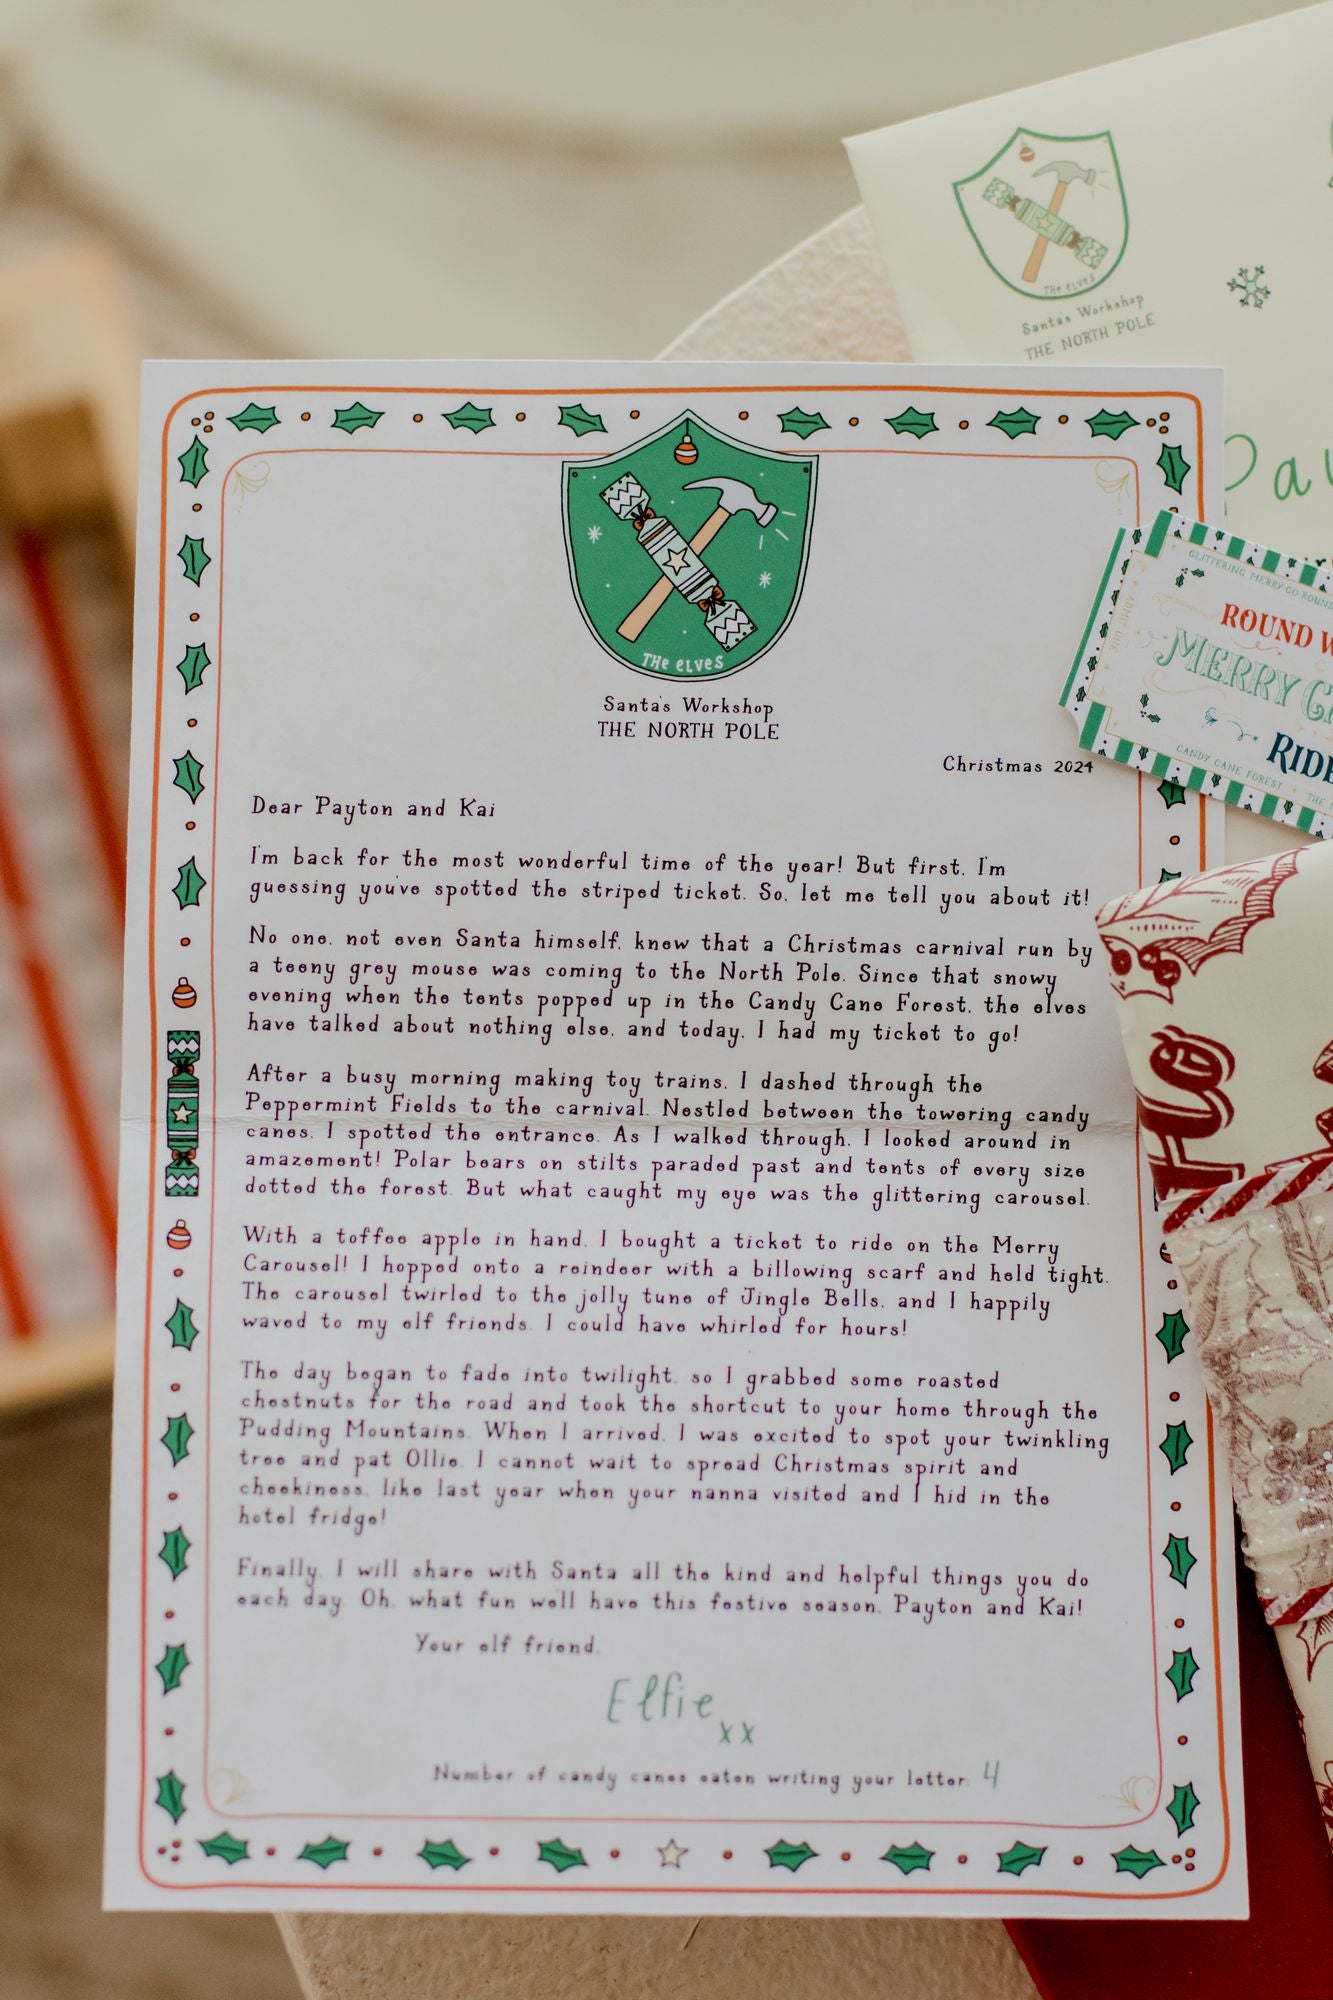 THE ELVES
Santa's Workshop
THE NORTH POLE
Pay
GLITTERING MERRY-GO-ROUND
ADMIT ONE
ROUND
MERRY
RIDE
CANDY CANE FOREST
THE
THE ELVES
Santa's Workshop
THE NORTH POLE
Christmas 2024
Dear Payton and Kai
I'm back for the most wonderful time of the year! But first, I'm
guessing you've spotted the striped ticket. So, let me tell you about it!
No one, not even Santa himself, knew that a Christmas carnival run by
a teeny grey mouse was coming to the North Pole. Since that snowy
evening when the tents popped up in the Candy Cane Forest, the elves
have talked about nothing else, and today, I had my ticket to go!
After a busy morning making toy trains, I dashed through the
Peppermint Fields to the carnival. Nestled between the towering candy
canes, I spotted the entrance. As I walked through, I looked around in
amazement! Polar bears on stilts paraded past and tents of every size
dotted the forest. But what caught my eye was the glittering carousel.
With a toffee apple in hand, I bought a ticket to ride on the Merry
Carousel! I hopped onto a reindeer with a billowing scarf and held tight.
The carousel twirled to the jolly tune of Jingle Bells, and I happily
waved to my elf friends. I could have whirled for hours!
The day began to fade into twilight, so I grabbed some roasted
chestnuts for the road and took the shortcut to your home through the
Pudding Mountains. When I arrived, I was excited to spot your twinkling
tree and pat Ollie. I cannot wait to spread Christmas spirit and
cheekiness, like last year when your nanna visited and I hid in the
hotel fridge!
Finally, I will share with Santa all the kind and helpful things you do
each day. Oh, what fun we'll have this festive season, Payton and Kai!
Your elf friend,
Elfie xx
Number of candy canes eaten writing your letter: 4